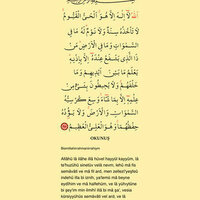 اَللهُ لَٓا اِلٰهَ اِلَّا هُوَ اَلْحَيُّ الْقَيُّومُ
لَا تَأْخُذُهُ سِنَةٌ وَلَا نَوْمٌ لَهُ مَا فِي
السَّمٰوَاتِ وَمَا فِي الْاَرْضِ مَنْ
ذَا الَّذِي يَشْفَعُ عِنْدَهُٓ اِلَّا بِاِذْنِهِ
يَعْلَمُ مَا بَيْنَ اَيْدِيهِمْ وَمَا
خَلْفَهُمْ وَلَا يُحِيطُونَ بِشَيْءٍ مِنْ
عِلْمِهِ اِلَّا بِمَا شَٓاءَ وَسِعَ كُرْسِيُّهُ
السَّمٰوَاتِ وَالْاَرْضَ وَلَا يَؤُدُهُ
حِفْظُهُمَا وَهُوَ الْعَلِيُّ الْعَظِيمُ
OKUNUŞ
Bismillahirrahmanirrahıym
Allâhü lâ ilâhe illâ hüvel hayyül kayyûm, lâ
te'huzühû sinetüv velâ nevm, lehû mâ fis
semâvâti ve mâ fil ard, men zellezî yeşfeû
indehû illâ bi iznih, ya'lemü mâ beyne
eydîhim ve mâ halfehüm, ve lâ yühıytûne
bi şey'im min ilmihî illâ bi mâ şâ', vesia
kürsiyyühüs semâvâti vel ard, ve lâ